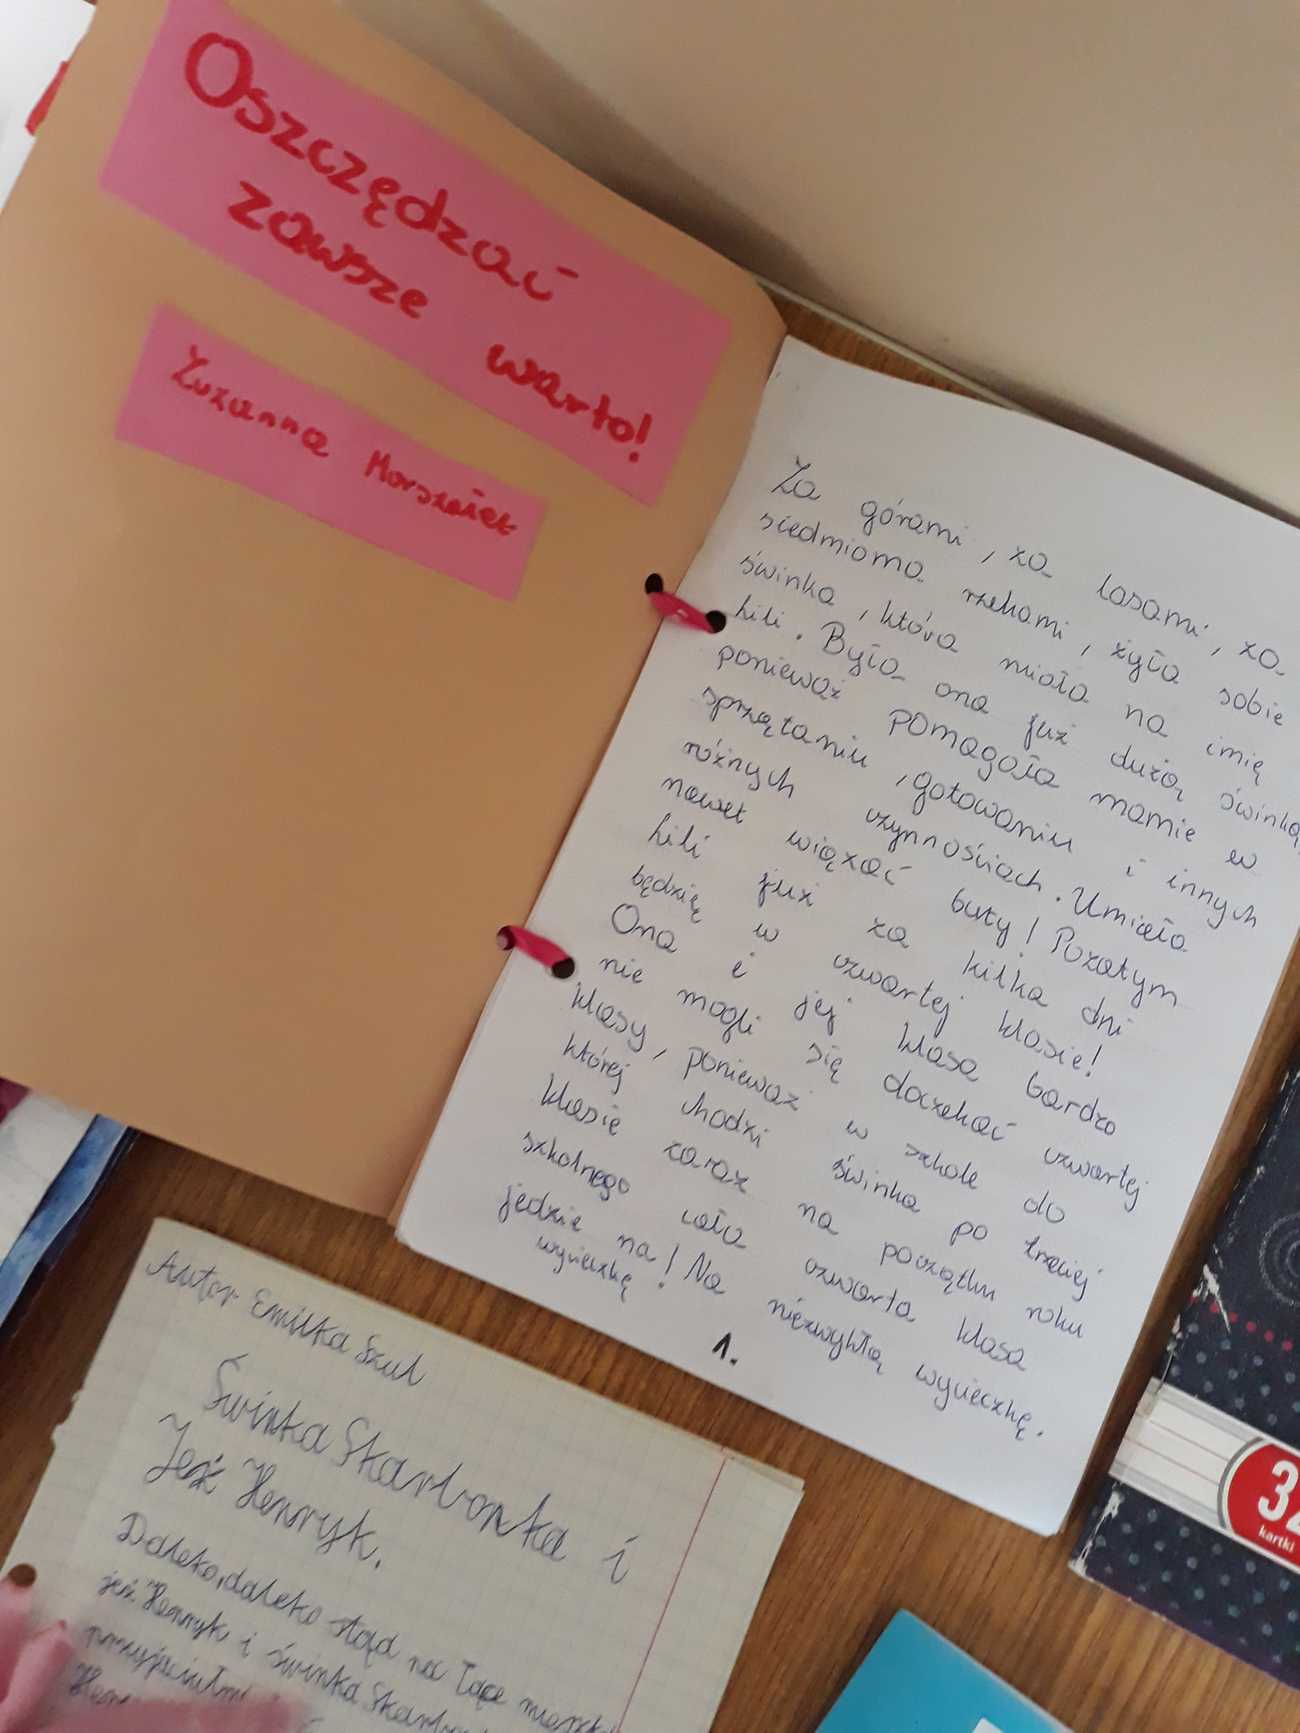 Oszczędzać
zawsze warto!
Zuzanna Marszałek
Za górami, za lasami, za
siedmioma rzekami, żyła sobie
świnka, która miała na imię
Lili. Była ona już dużą świnką,
ponieważ pomagała mamie w
sprzątaniu, gotowaniu i innych
różnych czynnościach. Umiała
nawet wiązać buty! Pozatym
Lili już za kilka dni
będzię w czwartej klasie!
Ona i jej klasa bardzo
nie mogli się doczekać czwartej
klasy, ponieważ w szkole do
której chodzi świnka po trzeciej
klasie zaraz na początku roku
szkolnego cała czwarta klasa
jedzie na! Na niezwykłą wycieczkę.
wycieczkę
1.
Autor Emilka Szul
Świnka Skarbonka i
Jeż Henryk.
Daleko, daleko stąd na łące
jeż Henryk i świnka
32
kartki